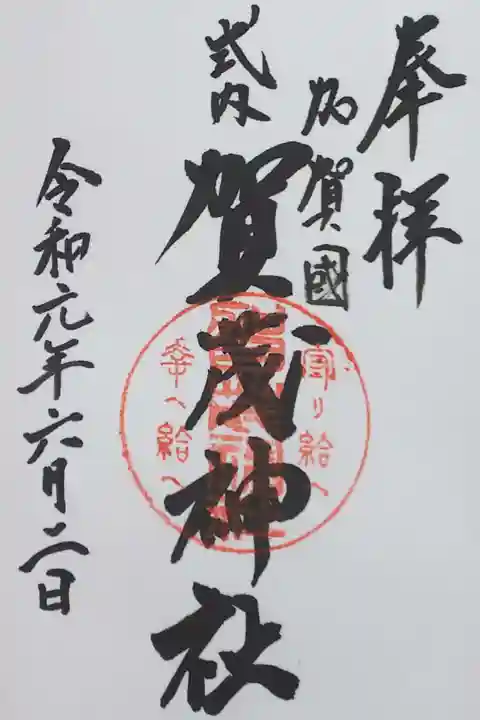 奉拝
加賀國
式内
賀茂神社
寄り給へ
幸へ給へ
令和元年六月二日